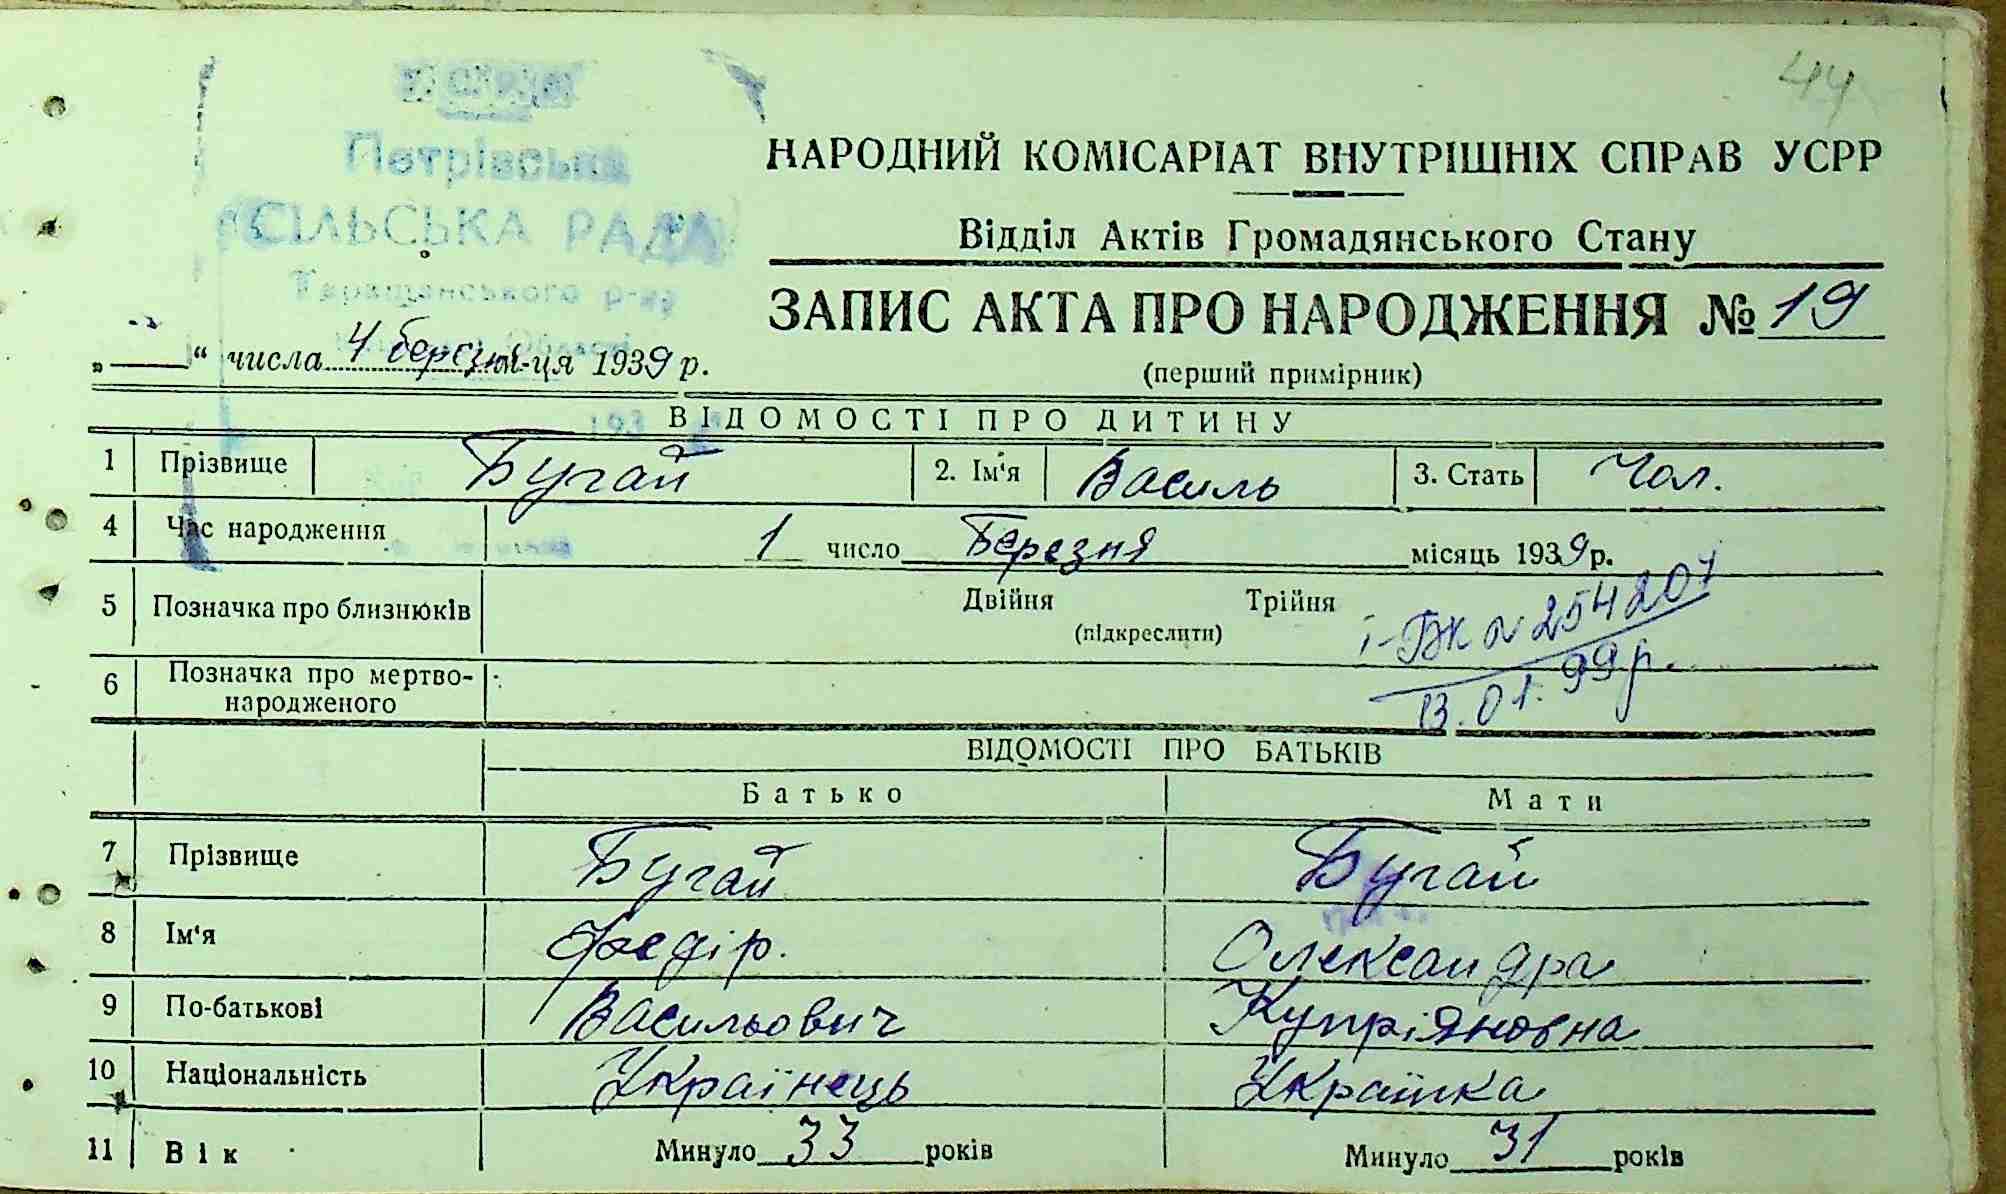 44
Петрівська
СІЛЬСЬКА РАДА
Таращанського р-ну
Області
193
НАРОДНИЙ КОМІСАРІАТ ВНУТРІШНІХ СПРАВ УСРР
Відділ Актів Громадянського Стану
ЗАПИС АКТА ПРО НАРОДЖЕННЯ № 19
(перший примірник)
„ “ числа 4 березня м-ця 1939 р.
ВІДОМОСТІ ПРО ДИТИНУ
1 Прізвище Бугай 2. Ім‘я Василь 3. Стать Чол.
4 Час народження 1 число Березня місяць 1939 р.
5 Позначка про близнюків Двійня Трійня
(підкреслити)
І-БК № 254207
13.01.99р.
6 Позначка про мертво-
народженого
ВІДОМОСТІ ПРО БАТЬКІВ
Батько Мати
7 Прізвище Бугай Бугай
8 Ім‘я Федір. Олександра
9 По-батькові Васильович Купріяновна
10 Національність Українець Українка
11 Вік Минуло 33 років Минуло 31 років